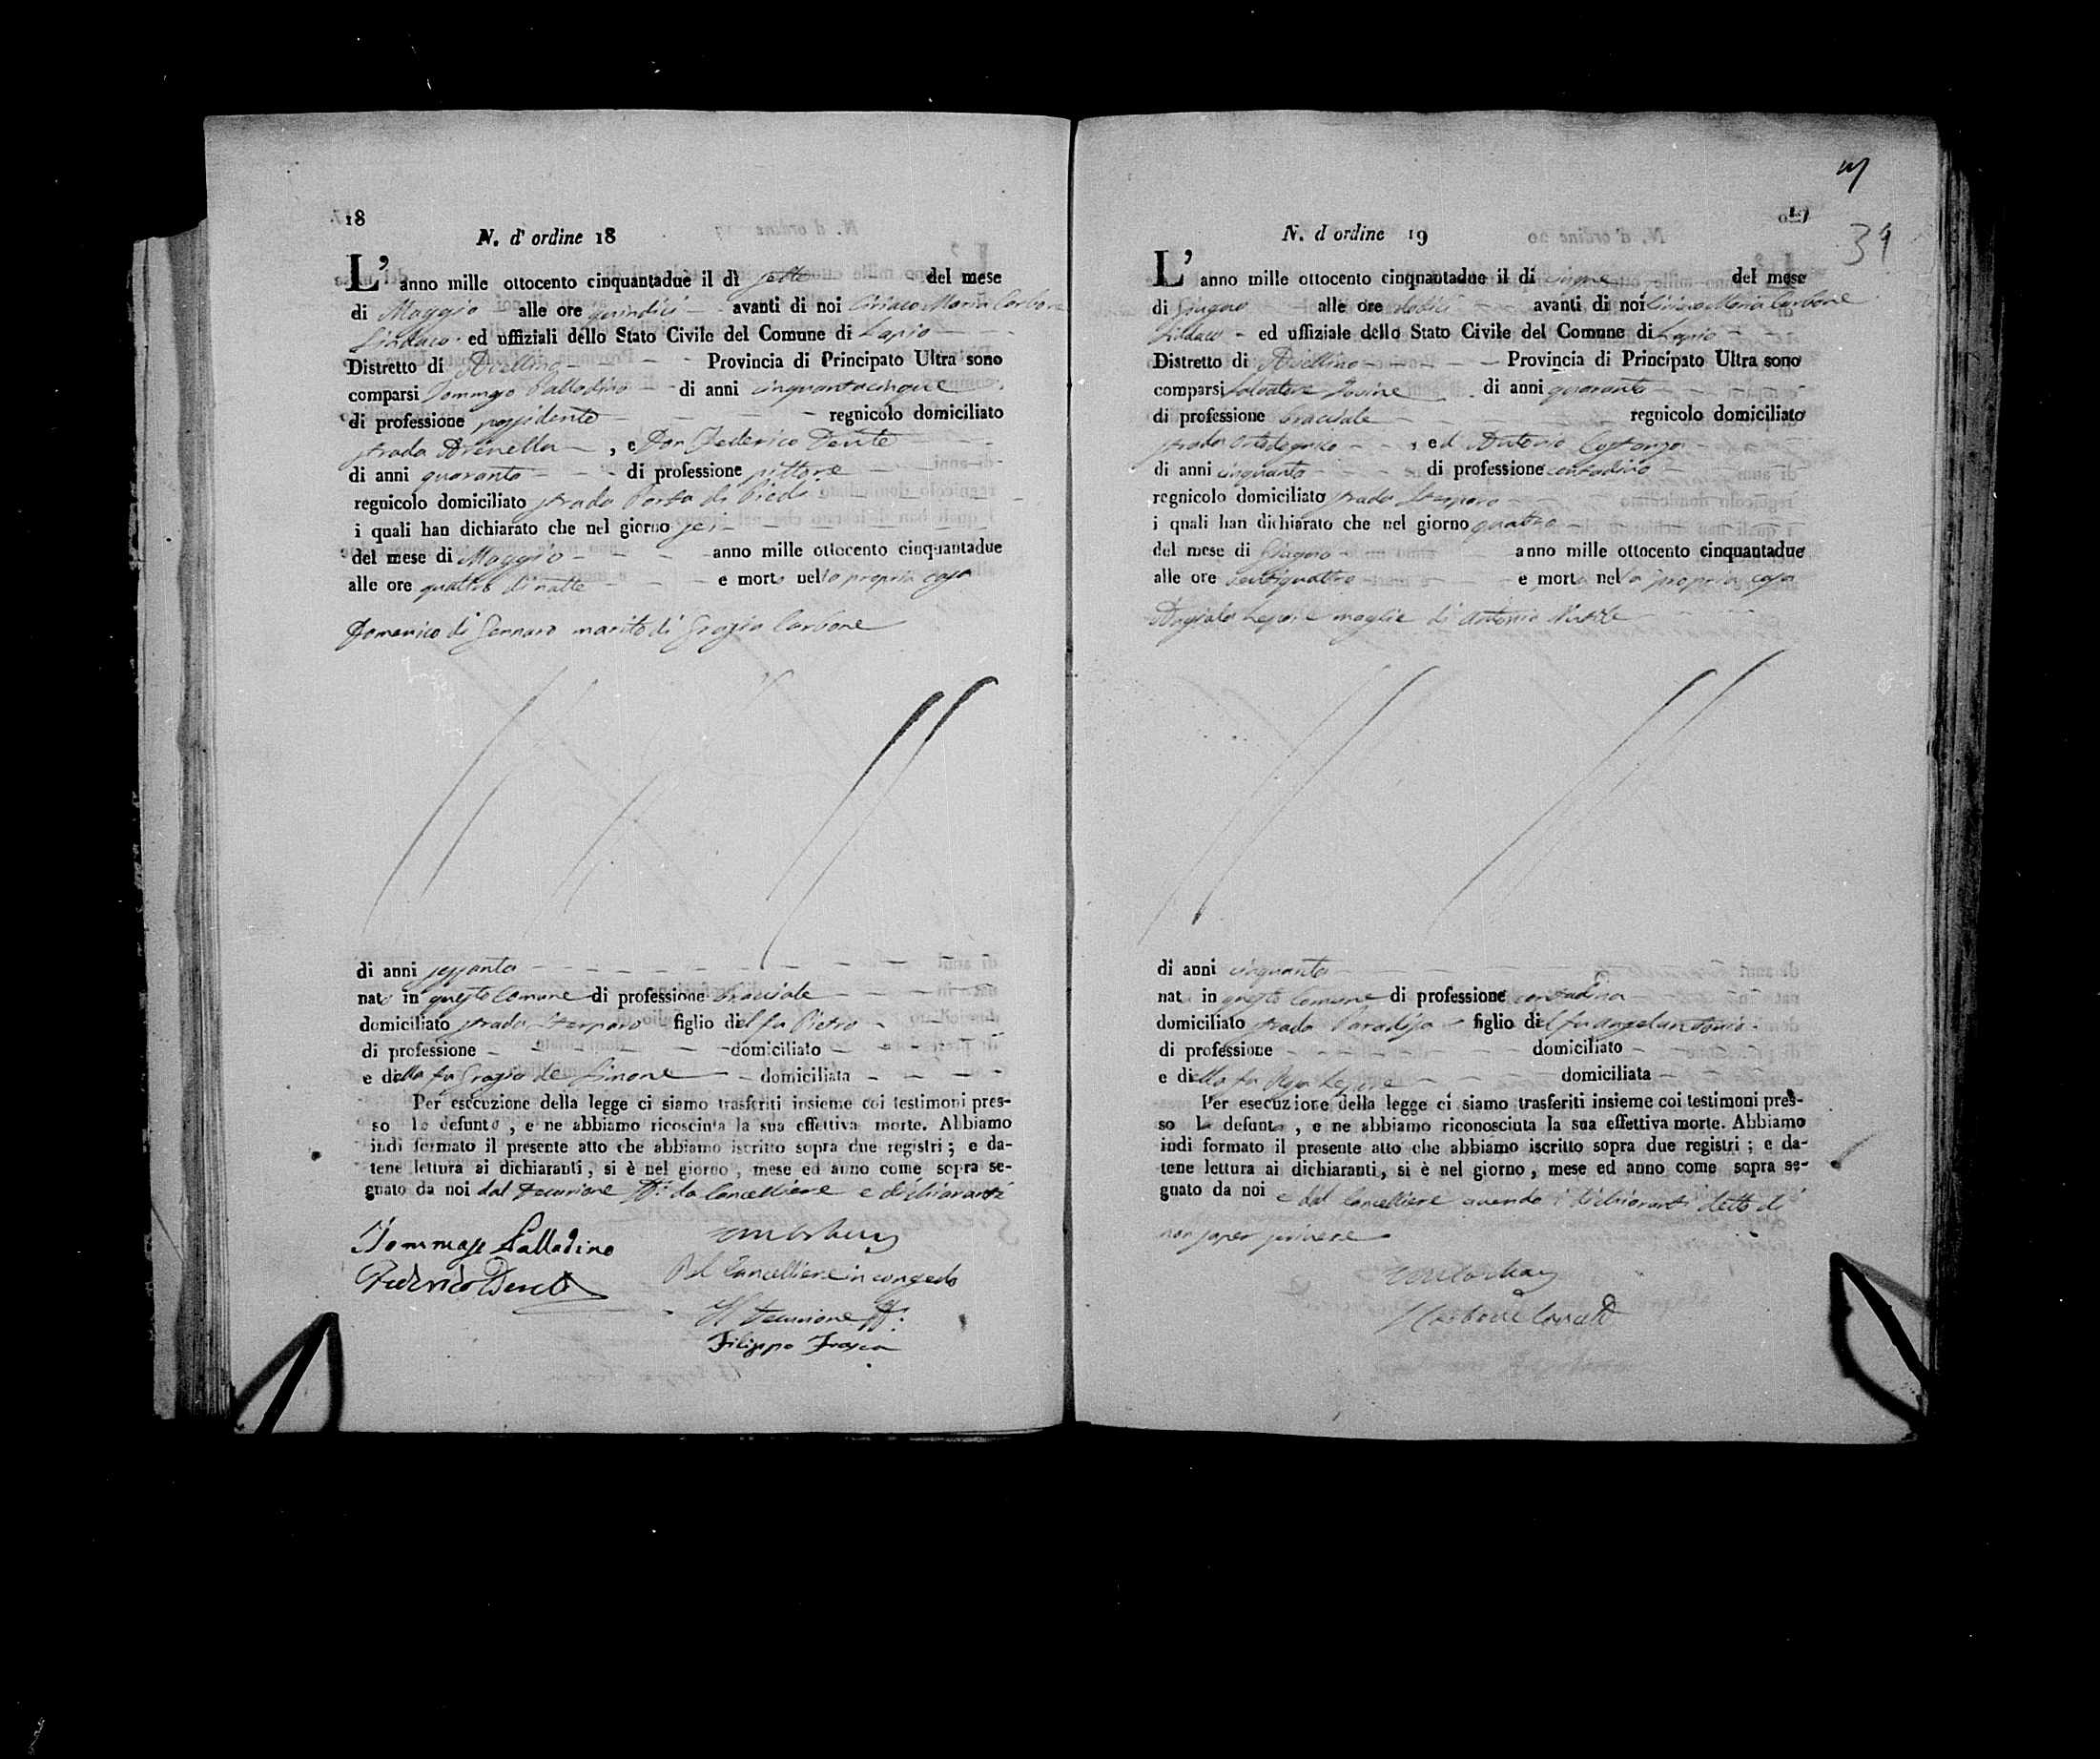 18
N. d' ordine 18
L' anno mille ottocento cinquantadue il dì sette del mese
di Maggio alle ore quindici avanti di noi Ciriaco Maria Carbone
Sindaco ed uffiziali dello Stato Civile del Comune di Lapio
Distretto di Avellino Provincia di Principato Ultra sono
comparsi Tommaso Palladino di anni cinquantacinque
di professione possidente regnicolo domiciliato
strada Arenella , e Don Federico Dente
di anni quaranta di professione pittore
regnicolo domiciliato strada Porta di Piedi
i quali han dichiarato che nel giorno sei
del mese di Maggio anno mille ottocento cinquantadue
alle ore quattro di notte e morto nella propria casa
Domenico di Gennaro marito di Grazia Carbone
di anni sessanta
nato in questo Comune di professione bracciale
domiciliato strada figlio del fu Pietro
di professione domiciliato
e della fu Grazia de Simone domiciliata
Per esecuzione della legge ci siamo trasferiti insieme coi testimoni pres-
so lo defunto , e ne abbiamo ricosciuta la sua effettiva morte. Abbiamo
indi formato il presente atto che abbiamo iscritto sopra due registri ; e da-
tene lettura ai dichiaranti, si è nel giorno , mese ed anno come sopra se-
gnato da noi dal Decurione ff. da Cancelliere e dichiaranti
Tommaso Palladino
Federico Dente
Pel Cancelliere in congedo
Il Decurione ff.
Filippo Frasca
19
34
N. d ordine 19
L' anno mille ottocento cinquantadue il dì cinque del mese
di Giugno alle ore dodici avanti di noi Ciriaco Maria Carbone
Sindaco ed uffiziale dello Stato Civile del Comune di Lapio
Distretto di Avellino Provincia di Principato Ultra sono
comparsi Salvatore Iovine di anni quaranta
di professione bracciale regnicolo domiciliato
strada , ed Antonio Costanzo
di anni cinquanta di professione contadino
regnicolo domiciliato strada
i quali han dichiarato che nel giorno quattro
del mese di Giugno anno mille ottocento cinquantadue
alle ore ventiquattro e morta nella propria casa
Lepore moglie di Antonio
di anni cinquanta
nat in questo Comune di professione contadina
domiciliato strada Paradiso figlio del fu Angelantonio
di professione domiciliato
e della fu Rosa Lepore domiciliata
Per esecuzione della legge ci siamo trasferiti insieme coi testimoni pres-
so la defunta , e ne abbiamo riconosciuta la sua effettiva morte. Abbiamo
indi formato il presente atto che abbiamo iscritto sopra due registri ; e da-
tene lettura ai dichiaranti, si è nel giorno , mese ed anno come sopra se-
gnato da noi e dal Cancelliere avendo i dichiaranti detto di
non saper scrivere